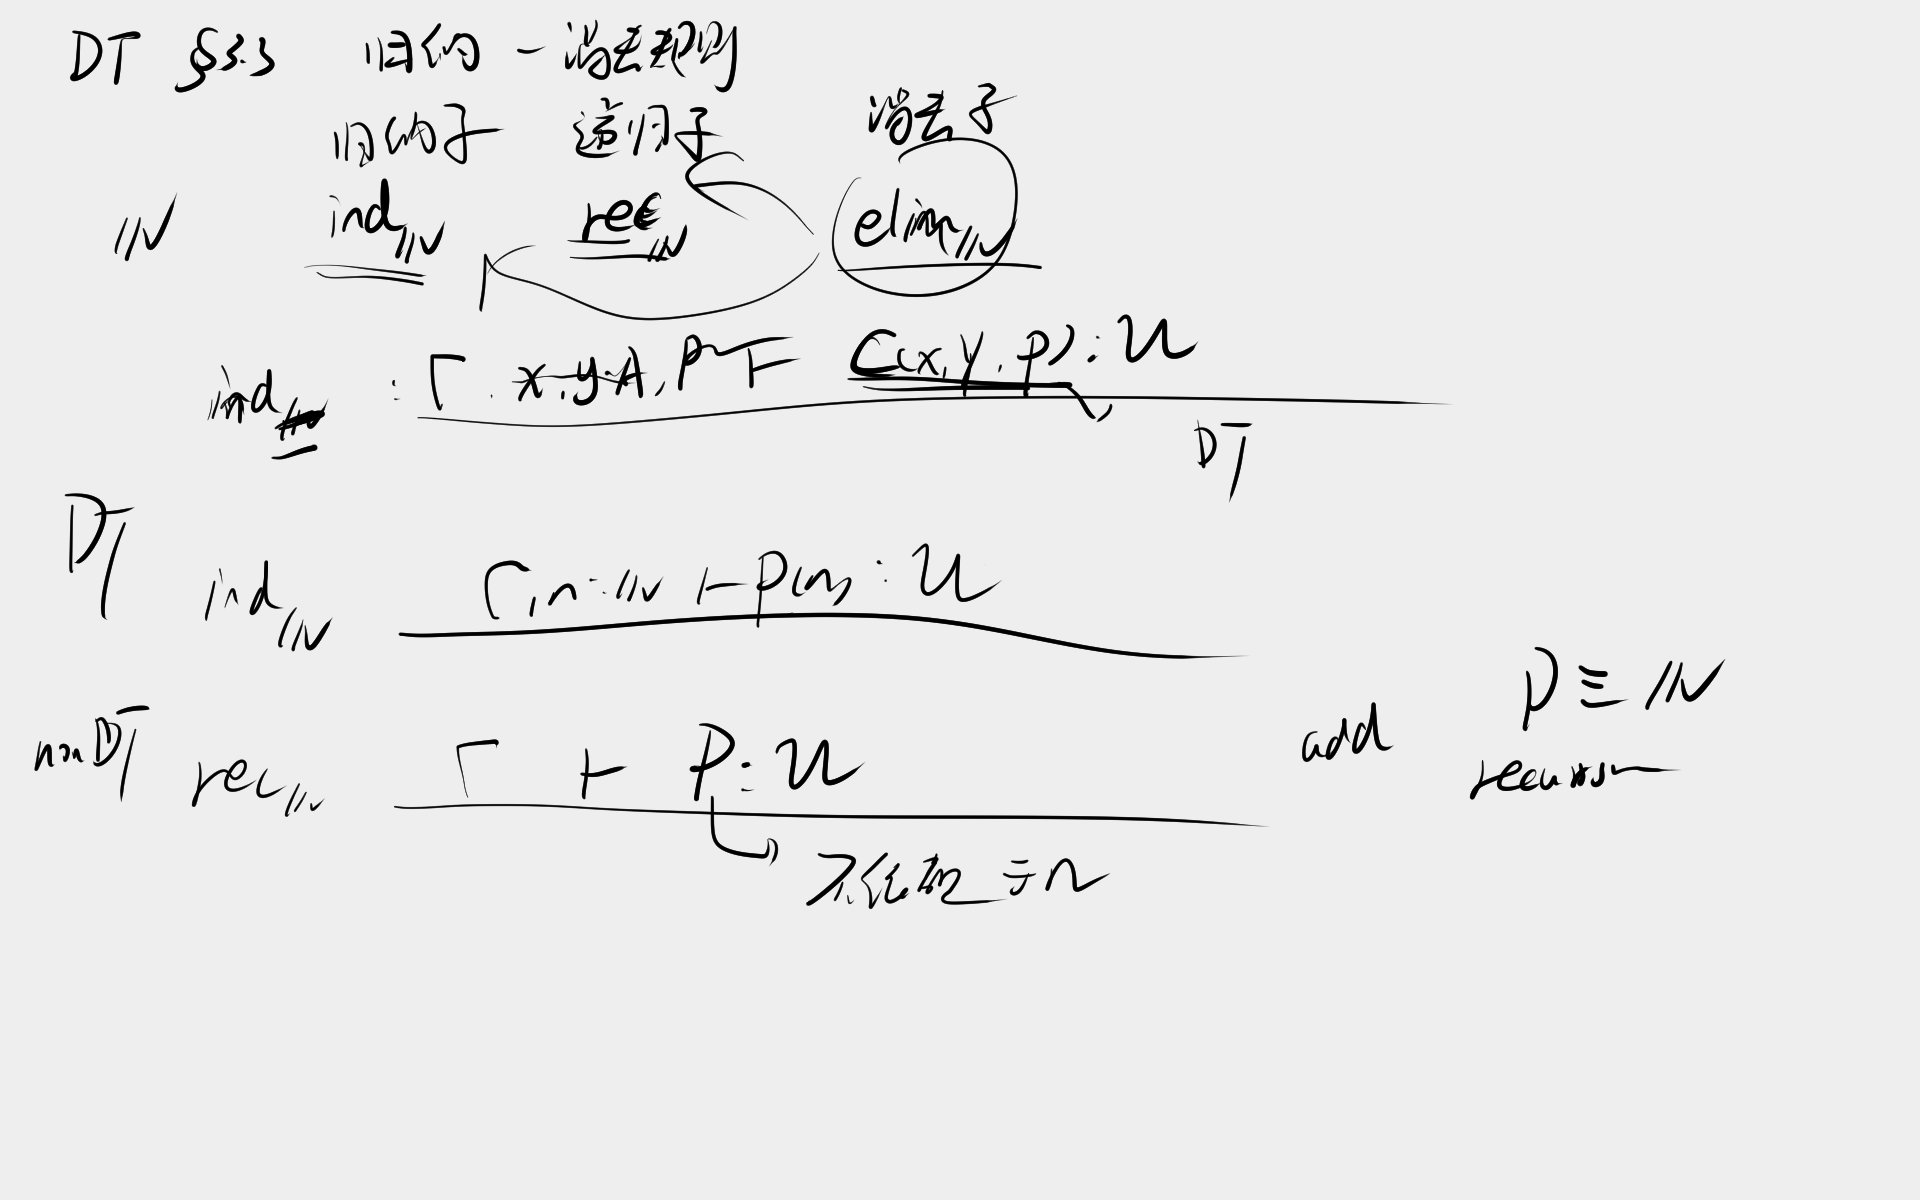 DT §3.3 归纳 - 消去规则
归纳子 递归子 消去子
ℕ ind_ℕ rec_ℕ elim_ℕ
ind : Γ, x,y:A, p ⊢ C(x,y,p) : U
DT
DT ind_ℕ Γ, n:ℕ ⊢ P(n) : U
nonDT rec_ℕ Γ ⊢ P : U add P ≡ ℕ
recursion
不依赖于n